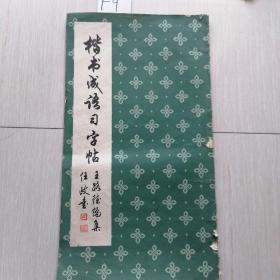 F9
楷书成语习字帖
王路编集
任政書